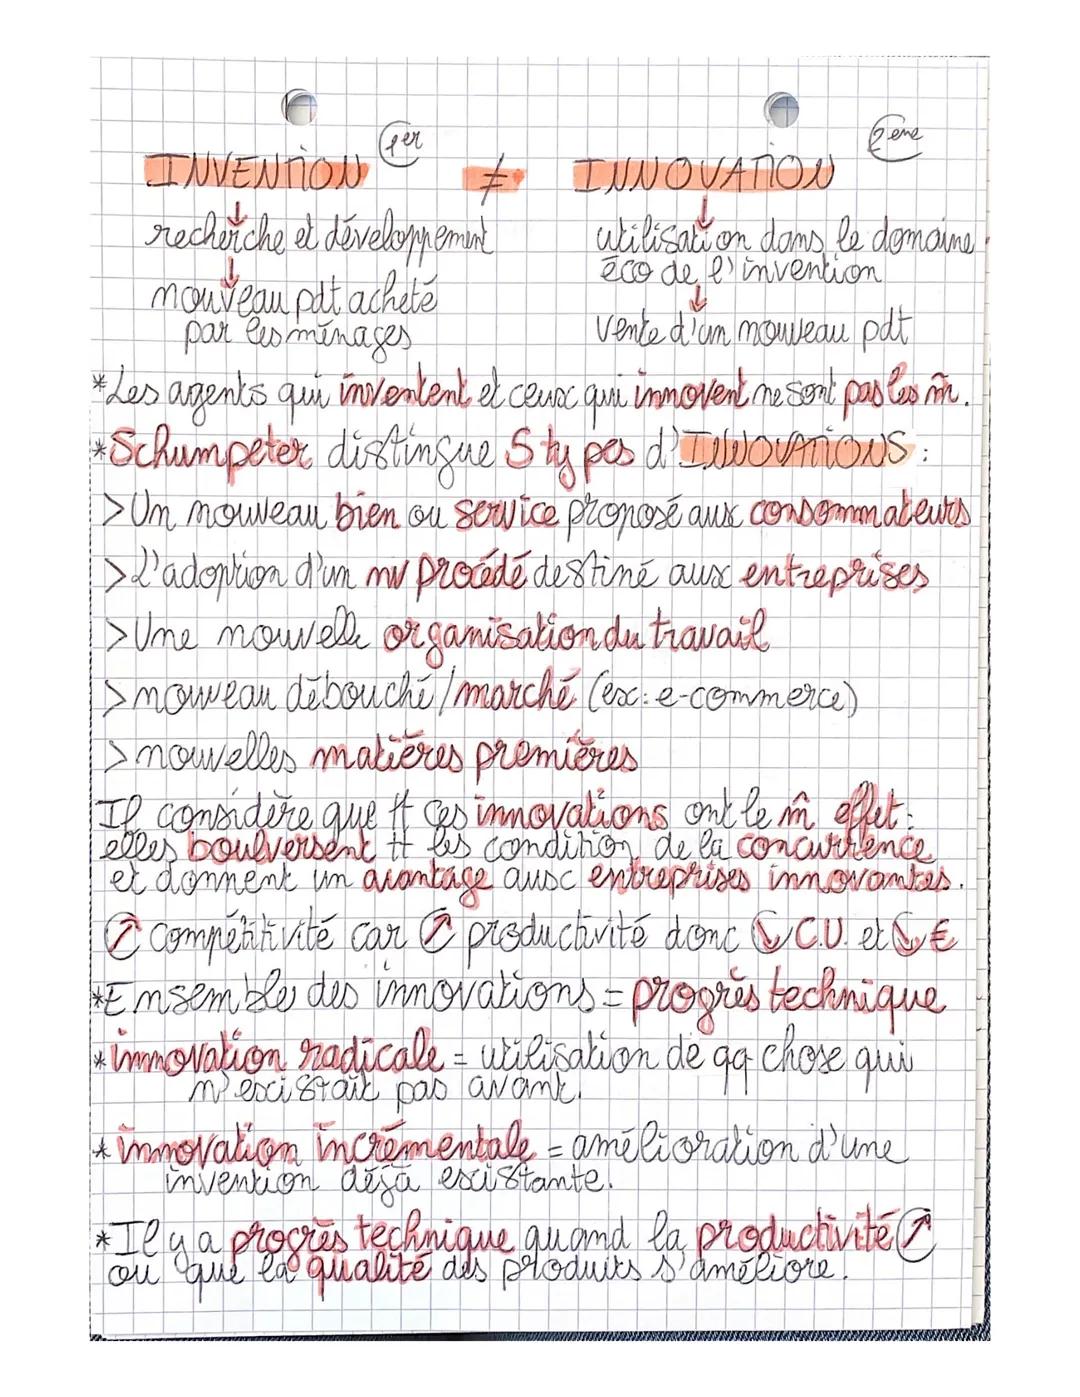 INVENTION 1er ≠ INNOVATION 2ème
↓ ↓
recherche et développement
↓
nouveau pdt acheté
par les ménages
utilisation dans le domaine
éco de l'invention
↓
vente d'un nouveau pdt
*Les agents qui inventent et ceux qui innovent ne sont pas les m̂.
*Schumpeter distingue 5 types d'INNOVATIONS :
>Un nouveau bien ou service proposé aux consommateurs
>L'adoption d'un nv procédé destiné aux entreprises
>Une nouvelle organisation du travail
>nouveau débouché/marché (ex: e-commerce)
>nouvelles matières premières
Il considère que tt ces innovations ont le m̂ effet :
elles boulversent tt les condition de la concurrence
et donnent un avantage aux entreprises innovantes.
↗ compétitivité car ↗ productivité donc ↘ C.U. et ↘ €
*Ensemble des innovations = progrès technique
*innovation radicale = utilisation de qq chose qui
n'existait pas avant.
*innovation incrémentale = amélioration d'une
invention déjà existante.
*Il y a progrès technique quand la productivité ↗
ou que la qualité des produits s'améliore.